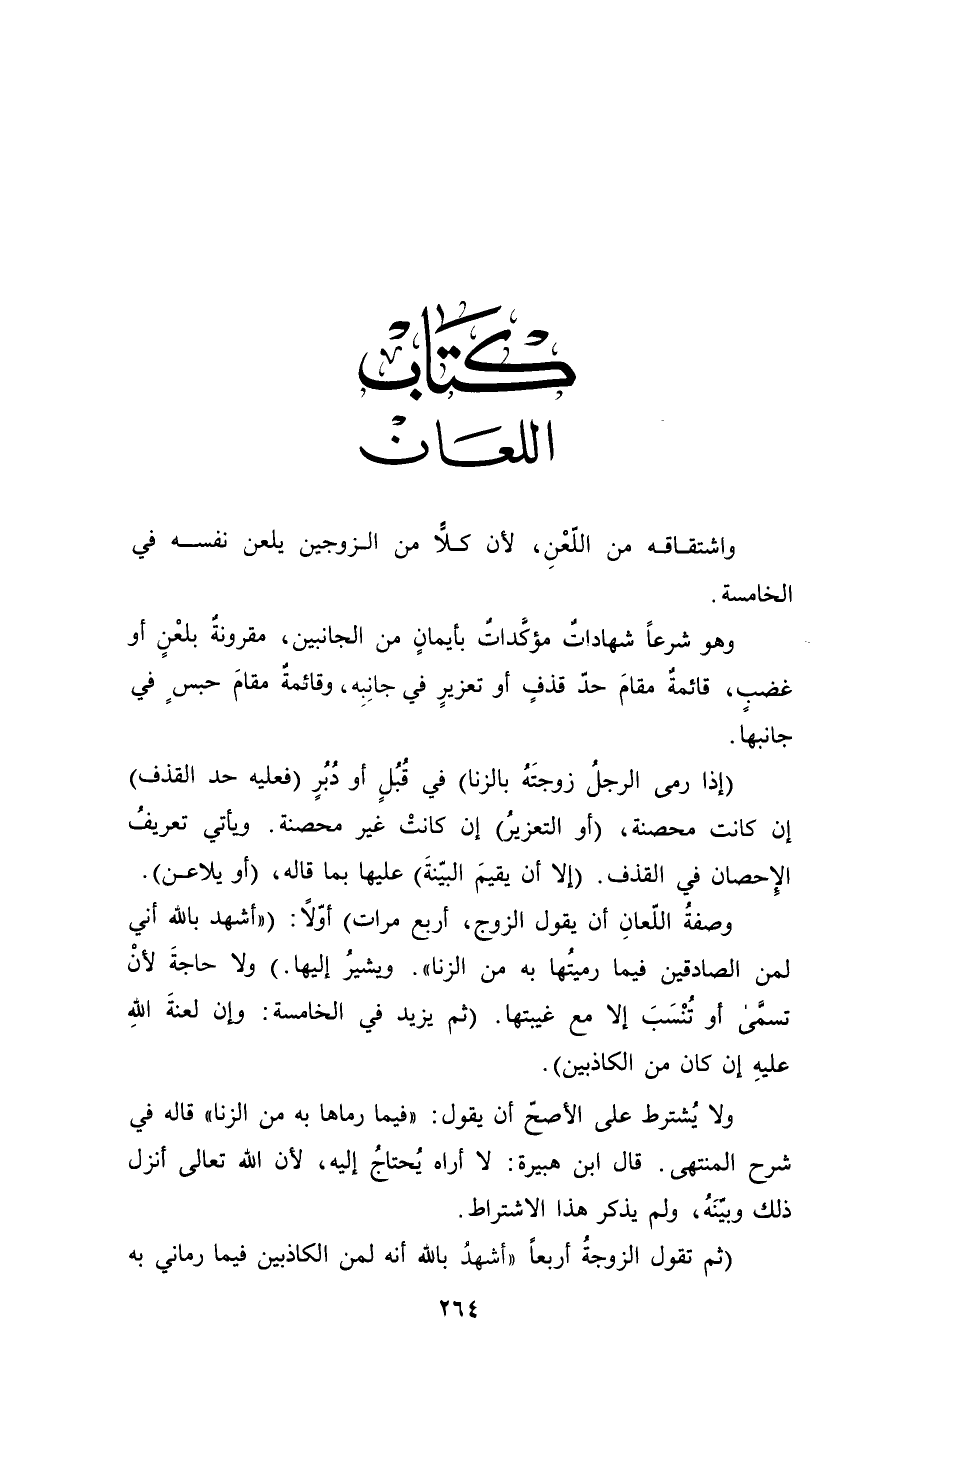 كتاب
اللعان
واشتقاقه من اللّعْنِ، لأن كلًّا من الزوجين يلعن نفسه في
الخامسة.
وهو شرعاً شهاداتٌ مؤكَّداتٌ بأيمانٍ من الجانبين، مقرونةٌ بلعْنٍ أو
غضبٍ، قائمةٌ مقامَ حدّ قذفٍ أو تعزيرٍ في جانِبِه، وقائمةٌ مقامَ حبسٍ في
جانبها.
(إذا رمى الرجلُ زوجتَهُ بالزنا) في قُبُلٍ أو دُبُرٍ (فعليه حد القذف)
إن كانت محصنة، (أو التعزيرُ) إن كانتْ غير محصنة. ويأتي تعريفُ
الإِحصان في القذف. (إلا أن يقيمَ البيّنةَ) عليها بما قاله، (أو يلاعن).
وصفةُ اللّعانِ أن يقول الزوج، أربع مرات) أوّلاً: («أشهد بالله أني
لمن الصادقين فيما رميتُها به من الزنا». ويشيرُ إليها.) ولا حاجةَ لأنْ
تسمَّىٰ أو تُنْسَبَ إلا مع غيبتها. (ثم يزيد في الخامسة: وإن لعنةَ اللهِ
عليهِ إن كان من الكاذبين).
ولا يُشترط على الأصحّ أن يقول: «فيما رماها به من الزنا» قاله في
شرح المنتهى. قال ابن هبيرة: لا أراه يُحتاجُ إليه، لأن الله تعالى أنزل
ذلك وبيّنَهُ، ولم يذكر هذا الاشتراط.
(ثم تقول الزوجةُ أربعاً «أشهدُ بالله أنه لمن الكاذبين فيما رماني به
٢٦٤